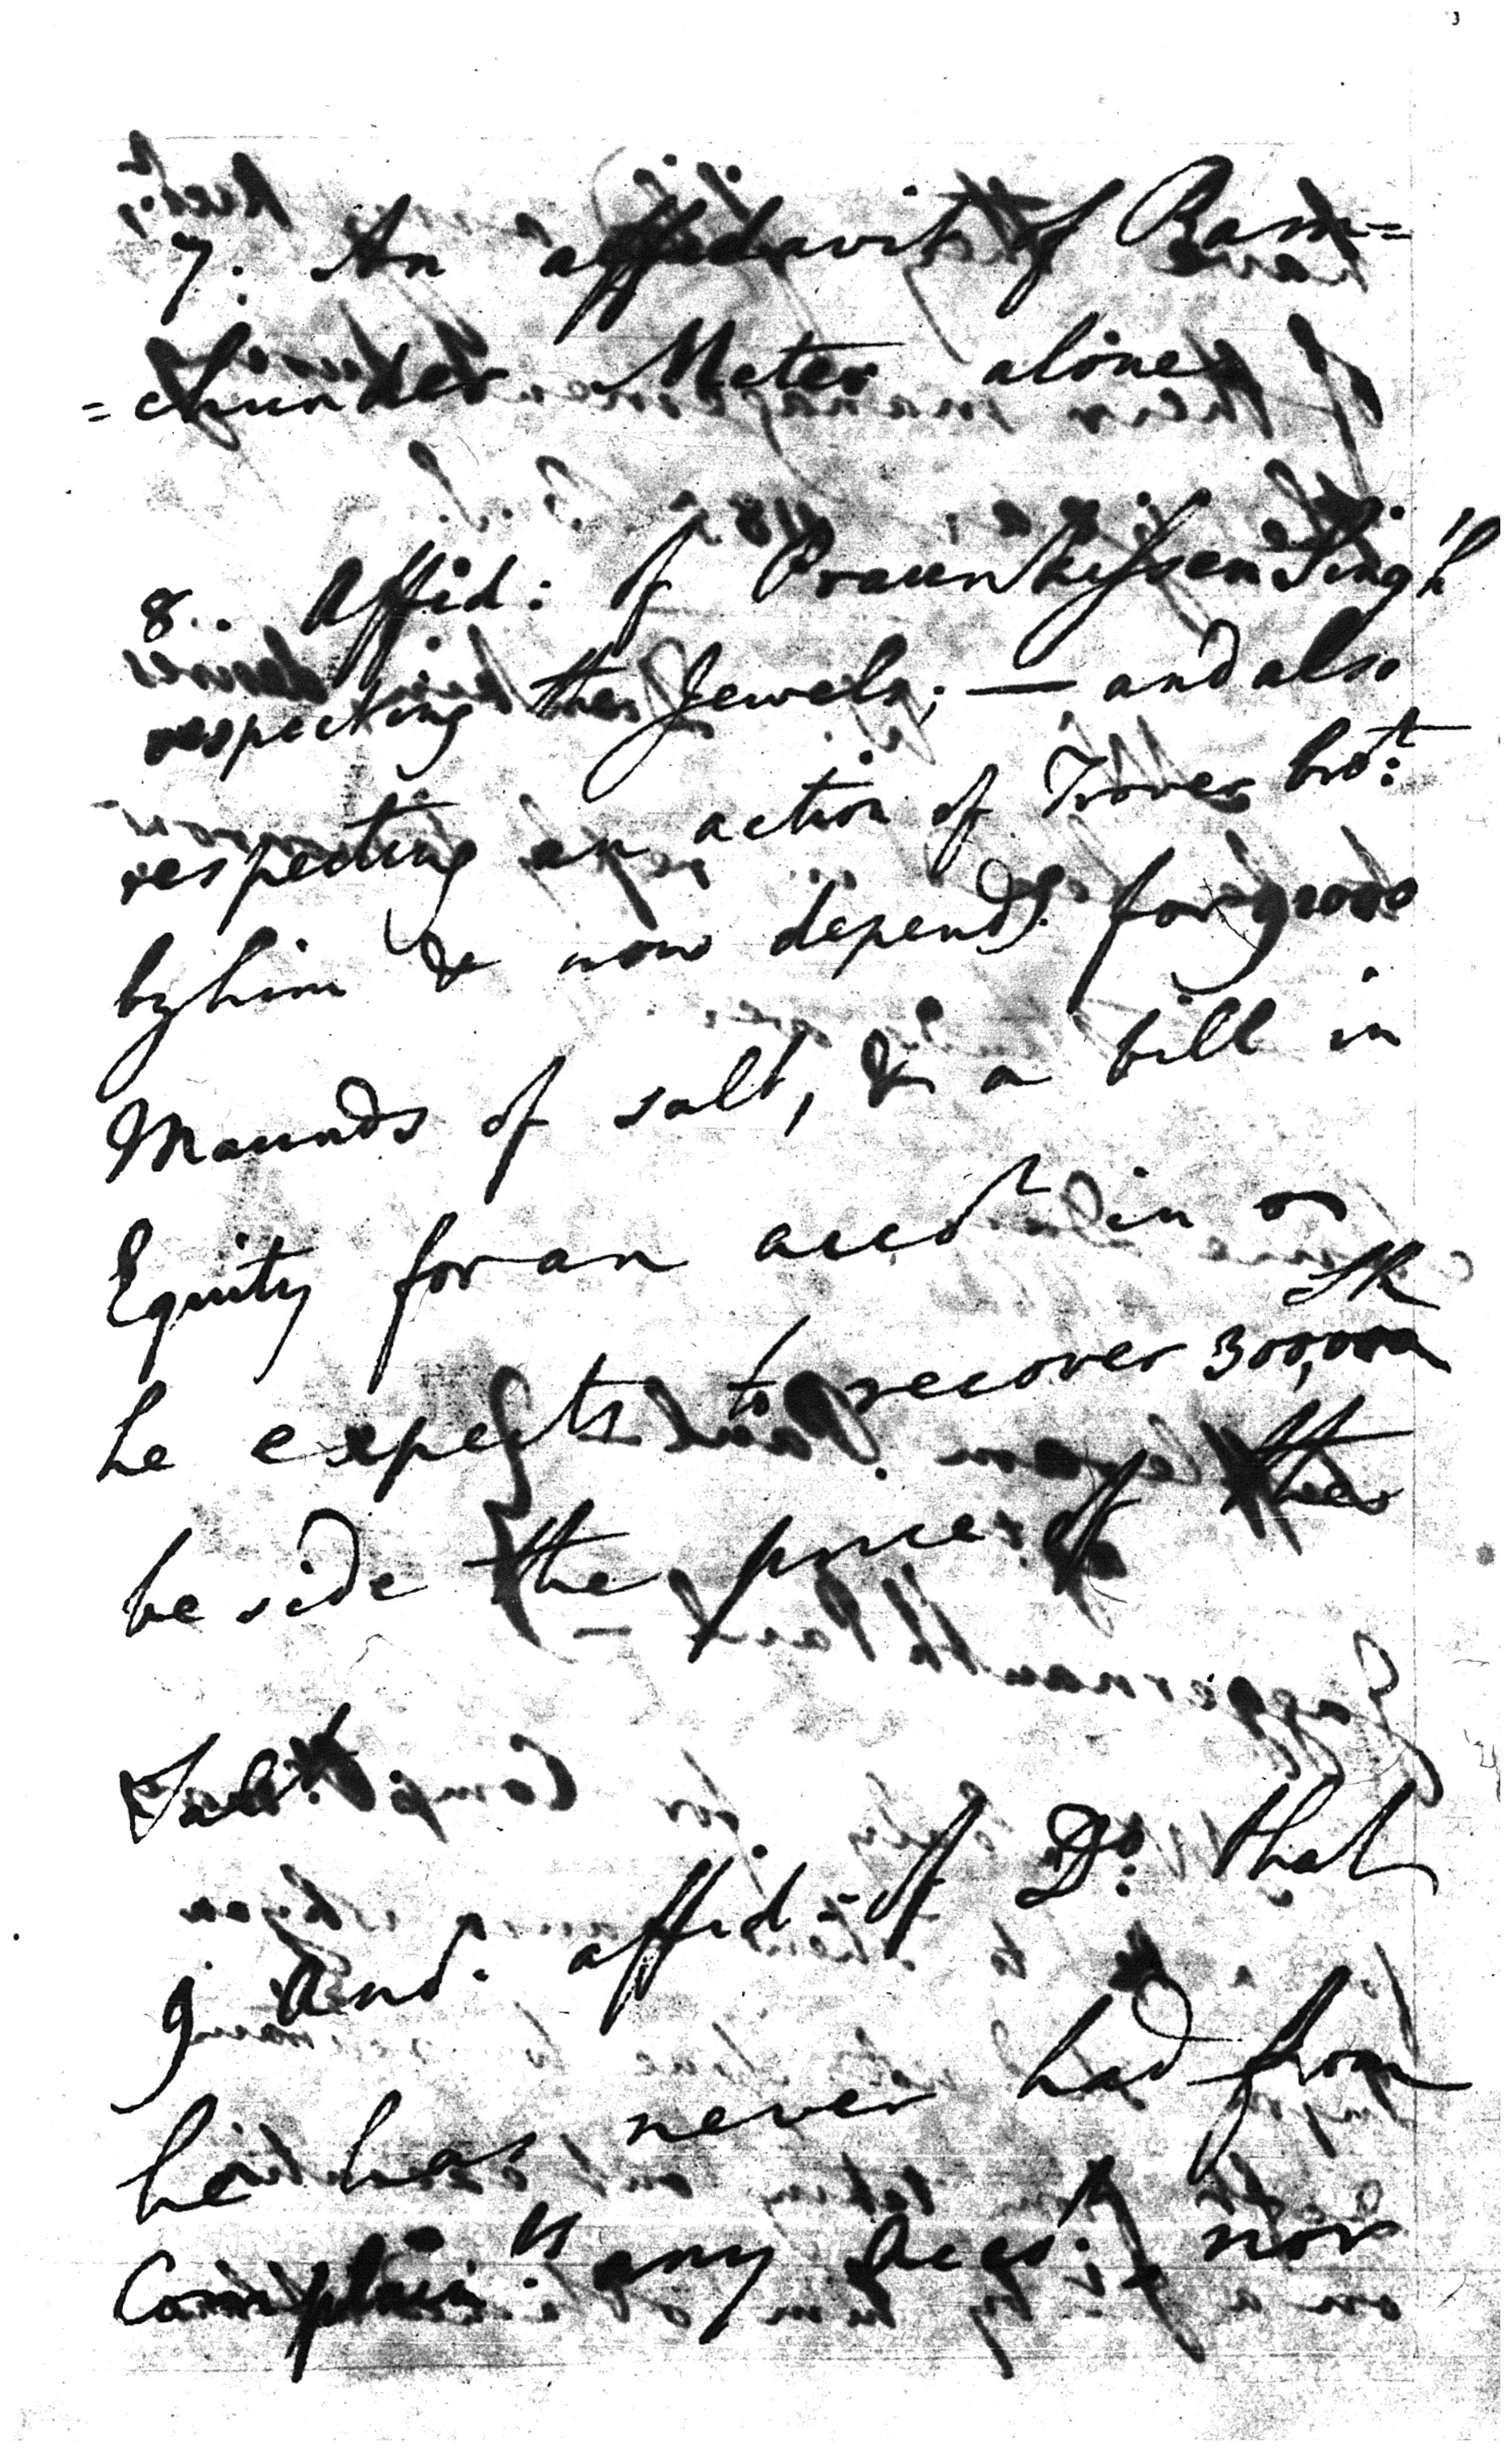 7. An affidavit of Ram=
=chunder Meter alone
8.. Affid: of Praunkissen Singh
respecting the Jewels; — and also
respecting an action of Trover bro:t
by him & now depend.g for 9000
Maunds of salt, & a bill in
Equity for an acco.t in
he expects to recover 300,000
beside the price of the
Salt.
9 And. affid. of D.o that
he has never had from
Complain:ts any Acco.t nor